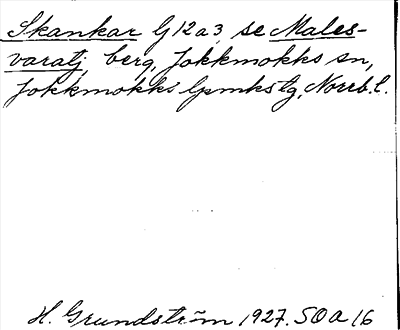 Skankar G 12 a 3, se Males-
varatj, berg, Jokkmokks sn,
Jokkmokks lpmkstg, Norrb. l.
H. Grundström 1927. SOA 16